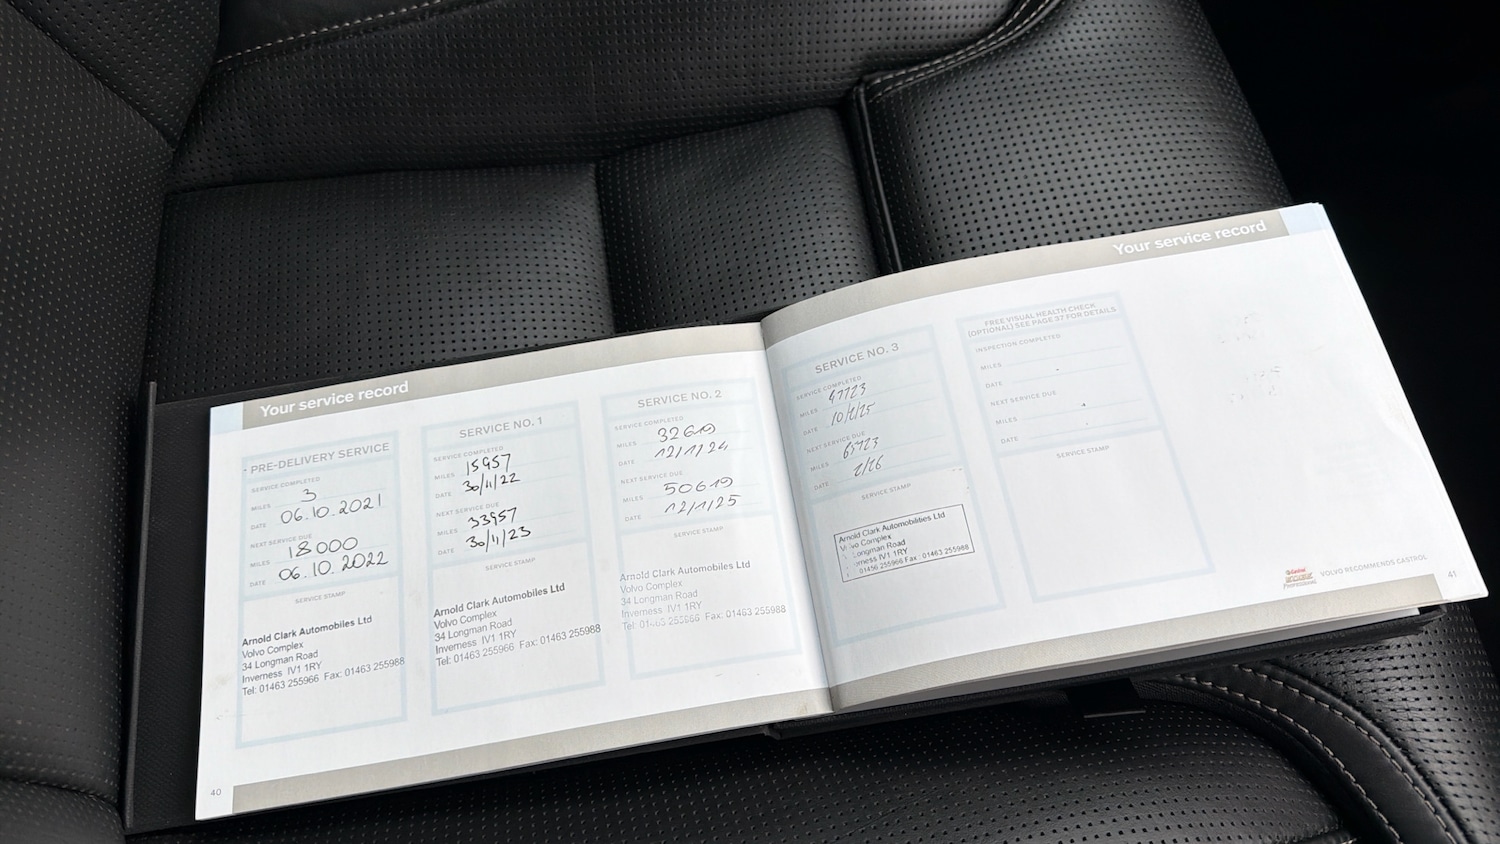 Your service record
PRE-DELIVERY SERVICE
SERVICE COMPLETED
MILES 3
DATE 06.10.2021
NEXT SERVICE DUE
MILES 18000
DATE 06.10.2022
SERVICE STAMP
Arnold Clark Automobiles Ltd
Volvo Complex
34 Longman Road
Inverness IV1 1RY
Tel: 01463 255966 Fax: 01463 255988
SERVICE NO. 1
SERVICE COMPLETED
MILES 15957
DATE 30/11/22
NEXT SERVICE DUE
MILES 33957
DATE 30/11/23
SERVICE STAMP
Arnold Clark Automobiles Ltd
Volvo Complex
34 Longman Road
Inverness IV1 1RY
Tel: 01463 255966 Fax: 01463 255988
SERVICE NO. 2
SERVICE COMPLETED
MILES 32619
DATE 12/1/24
NEXT SERVICE DUE
MILES 50619
DATE 12/1/25
SERVICE STAMP
Arnold Clark Automobiles Ltd
Volvo Complex
34 Longman Road
Inverness IV1 1RY
Tel: Fax: 01463 255988
40
Your service record
SERVICE NO. 3
SERVICE COMPLETED
MILES 47723
DATE
NEXT SERVICE DUE
MILES
DATE 2/26
SERVICE STAMP
Arnold Clark Automobilities Ltd
Complex
Longman Road
IV1 1RY
Fax : 01463 255988
FREE VISUAL HEALTH CHECK
(OPTIONAL) SEE PAGE 37 FOR DETAILS
INSPECTION COMPLETED
MILES
DATE
NEXT SERVICE DUE
MILES
DATE
SERVICE STAMP
Castrol
EDGE
Professional
VOLVO RECOMMENDS CASTROL
41